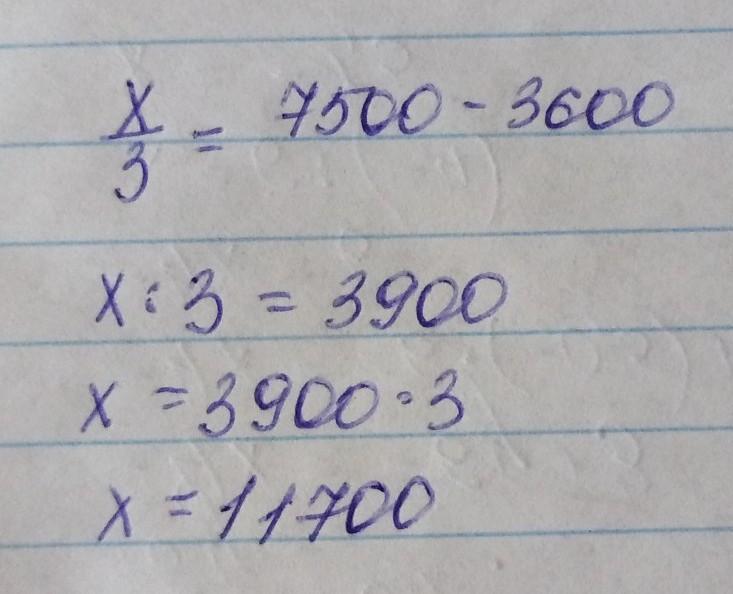 x/3 = 7500 - 3600
x : 3 = 3900
x = 3900 · 3
x = 11700